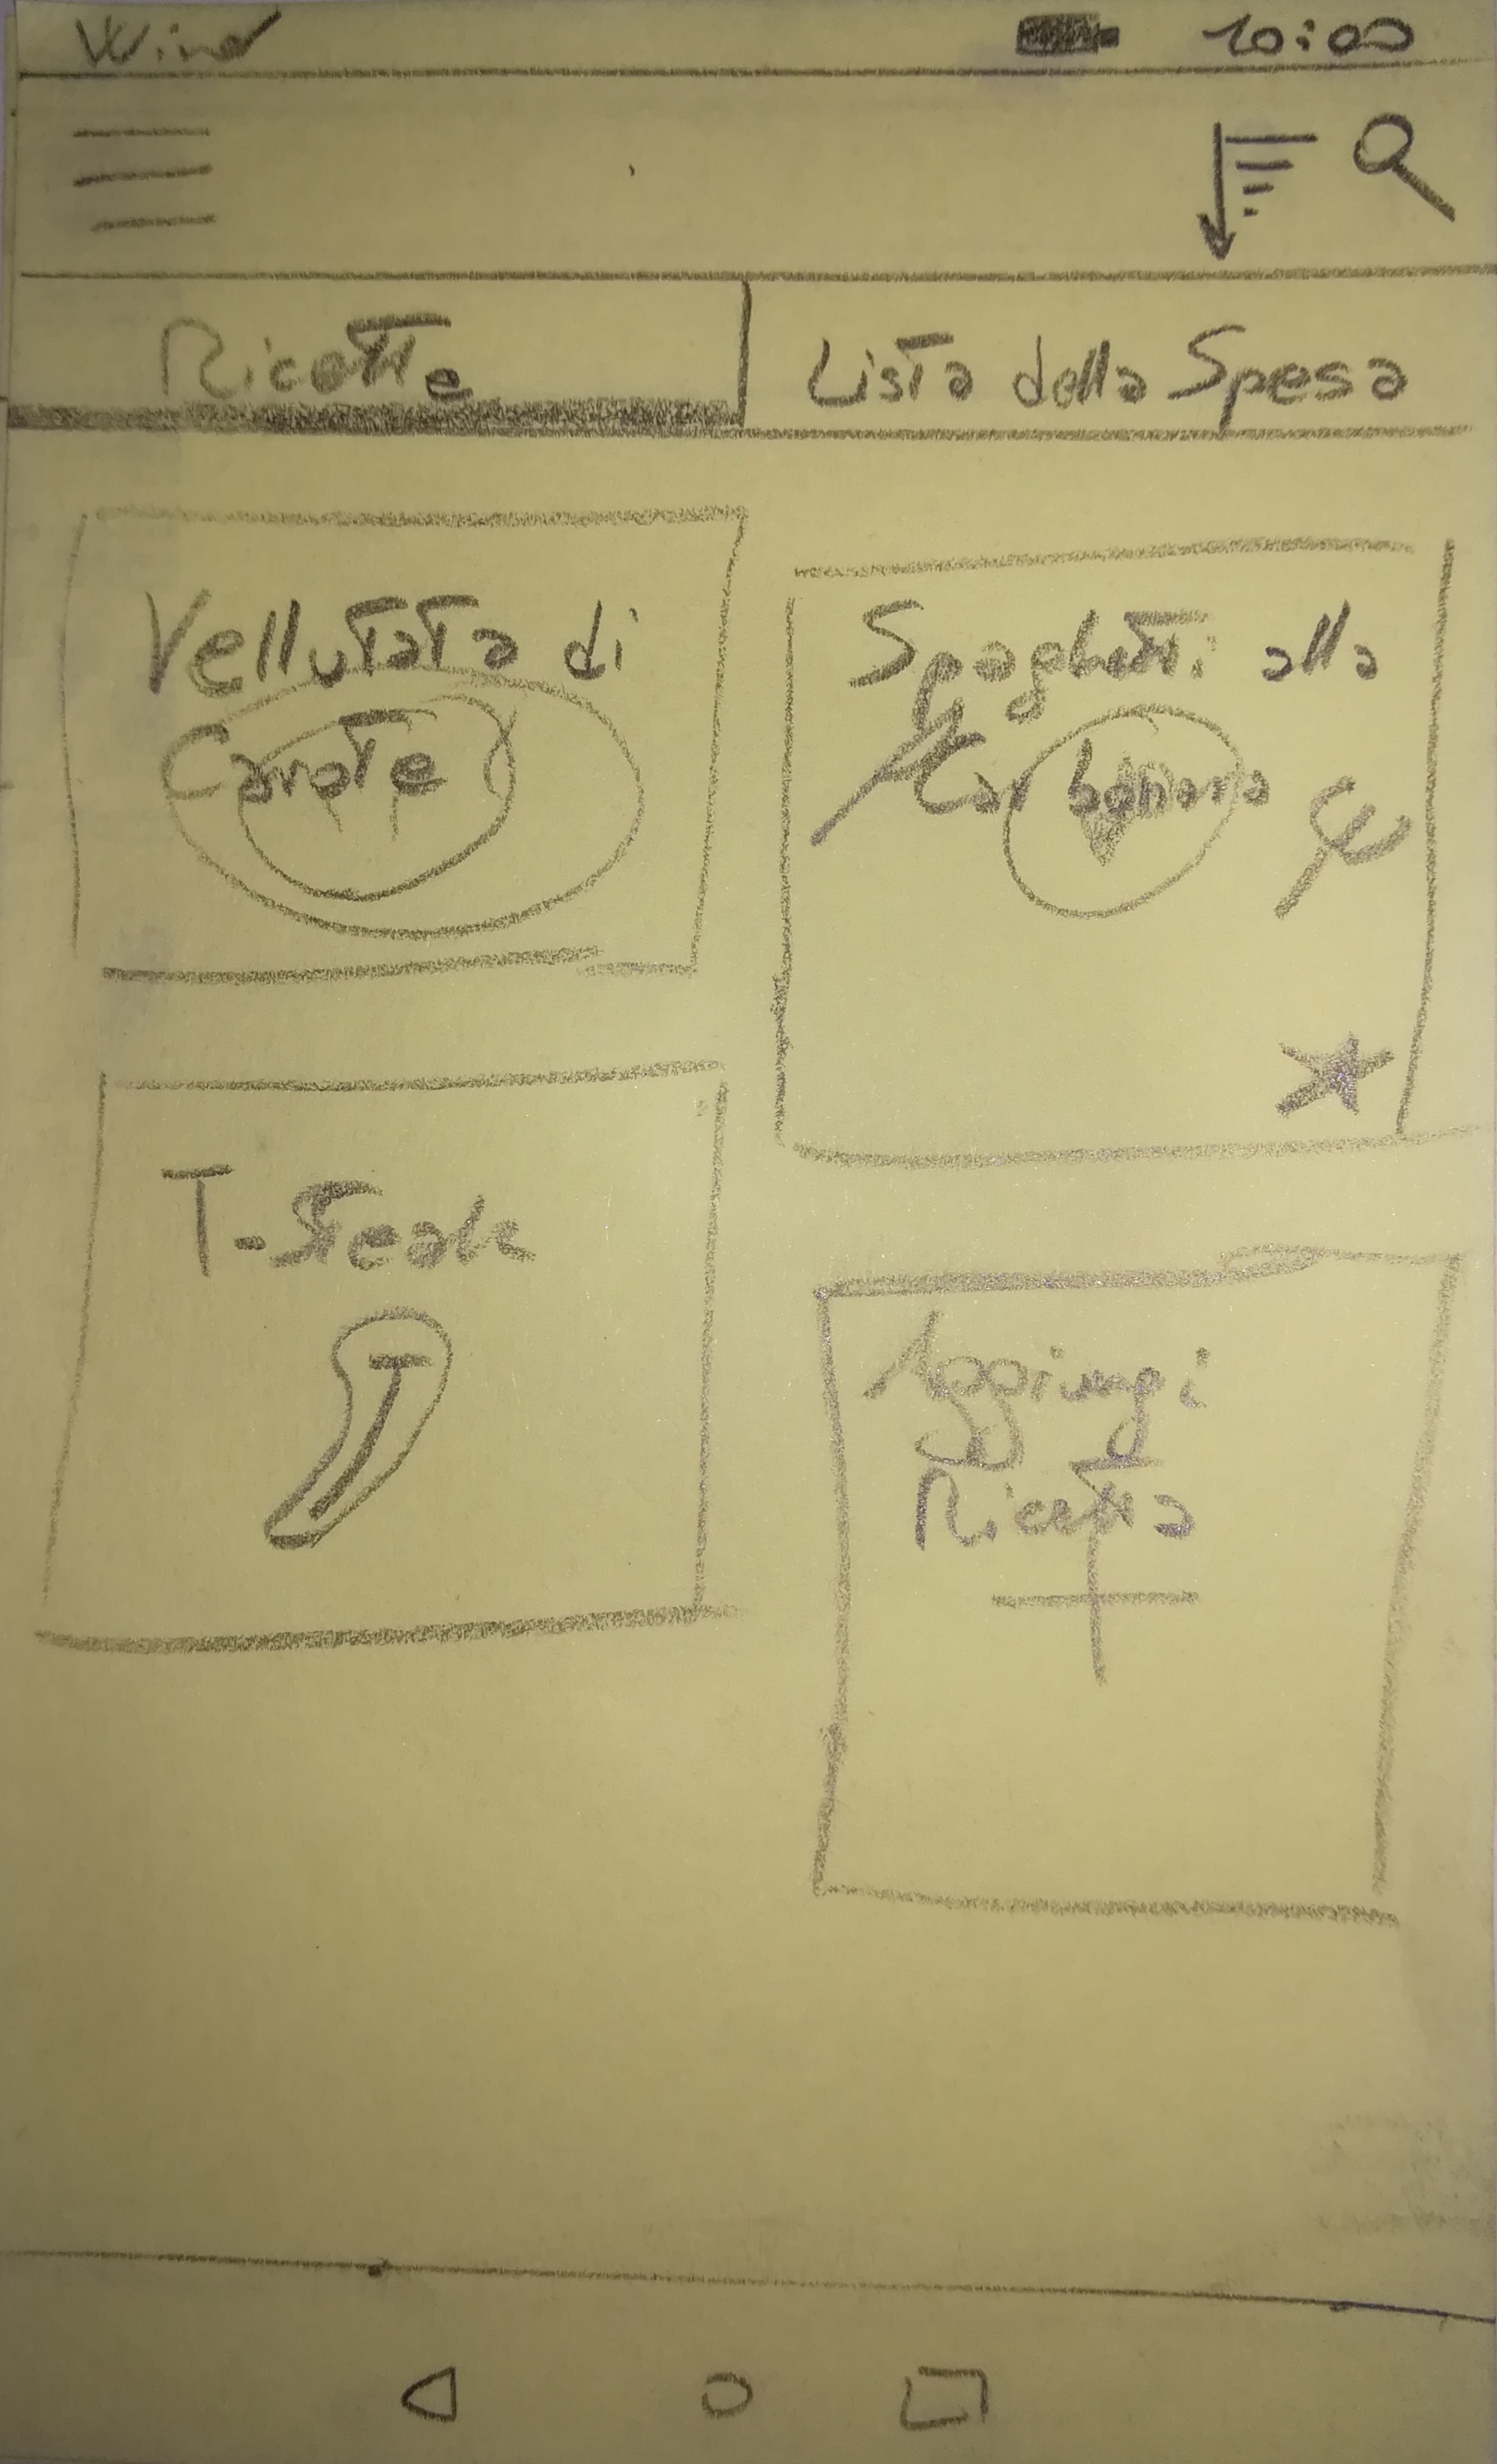 Wind
10:00
Ricette
Lista della Spesa
Vellutata di
Carote
Spaghetti alla
Carbonara
T-Steak
T
Aggiungi
Ricetta